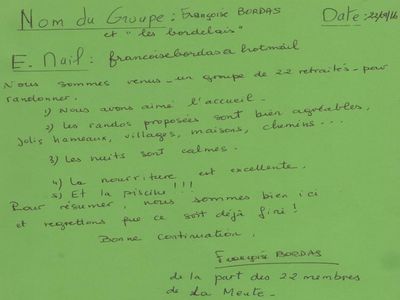 Nom du Groupe : Françoise BORDAS
Date : 22/9/16
et "les bordelais"
E. Mail : francoisebordas@hotmail
Nous sommes venus - un groupe de 22 retraités - pour
randonner.
1) Nous avons aimé l'accueil.
2) Les randos proposées sont bien agréables,
jolis hameaux, villages, maisons, chemins...
3) Les nuits sont calmes.
4) La nourriture est excellente.
5) Et la piscine !!!
Pour résumer, nous sommes bien ici
et regrettons que ce soit déjà fini !
Bonne continuation.
Françoise BORDAS
de la part des 22 membres
de la Meute -